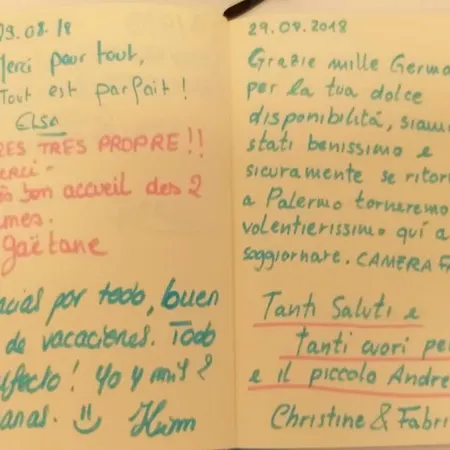 29.08.18
Merci pour tout,
Tout est parfait !
ELSA
TRES TRES PROPRE !!
Merci -
bon accueil des 2
Gaëtane
por todo, buen
de vacaciones. Todo
! Yo y mis 2
29.08.2018
Grazie mille Germa
per la tua dolce
disponibilità, siamo
stati benissimo e
sicuramente se ritor
a Palermo torneremo
volentierissimo quí a
soggiornare. CAMERA FA
Tanti Saluti e
tanti cuori pe
e il piccolo Andre
Christine & Fabri